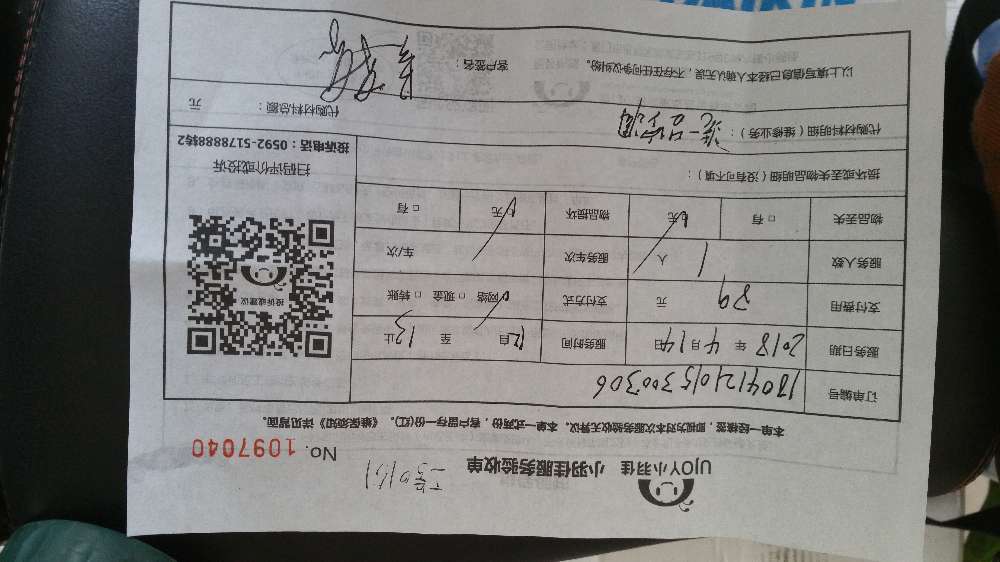 UJOY小羽佳 小羽佳服务验收单
No. 1097040
本单一经核签，即视为对本次服务验收无异议。本单一式两份，客户留存一份(红)。《维保须知》详见背面。
订单编号 180412015300306
服务日期 2018 年 4 月 14 日 服务时间 12 自 至 13 止
支付费用 89 元 支付方式 网络 □ 现金 □ 转账
服务人数 1 人 服务车次 车/次
物品丢失 □ 有 无 物品损坏 无 □ 有
投诉或建议
扫码评价或投诉
投诉电话：0592-5178888转2
损坏或丢失物品明细（没有可不填）：
代购材料明细（维修业务）：
代购材料总额： 元
以上填写信息已经本人确认无误，不存在任何争议纠纷。 客户签名：